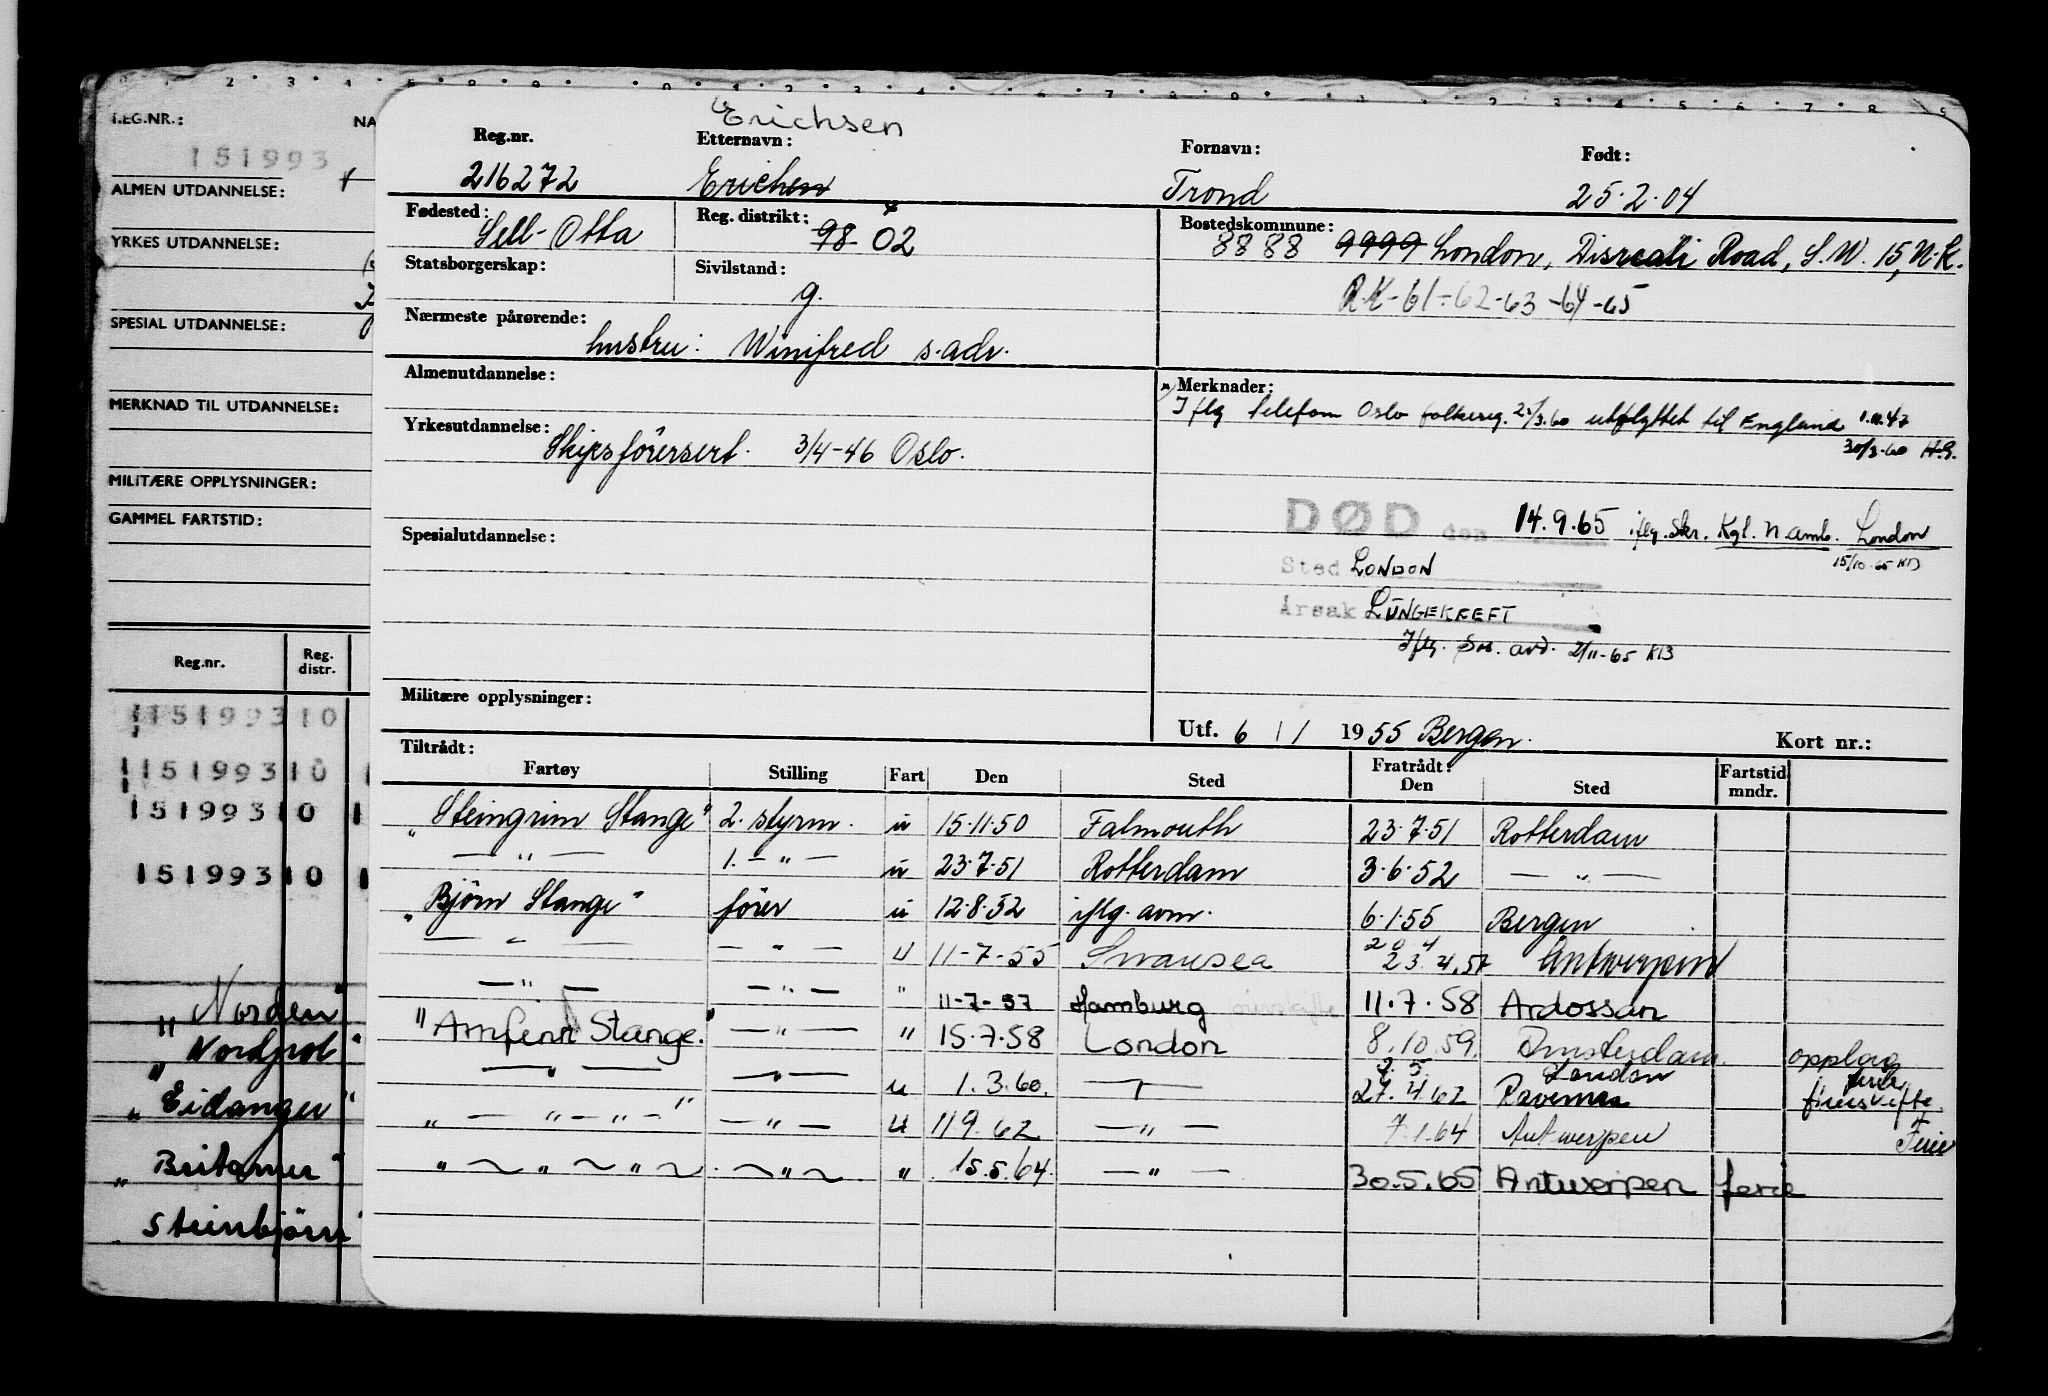 I.EG.NR.: NA
151993
ALMEN UTDANNELSE:
YRKES UTDANNELSE:
SPESIAL UTDANNELSE:
MERKNAD TIL UTDANNELSE:
MILITÆRE OPPLYSNINGER:
GAMMEL FARTSTID:
Reg.nr. Reg. distr.
151993 10
151993 10
151993 10
151993 10
"Norden"
"Nordpol"
"Eidanger"
"Britamer"
Steinbjörn"
Erichsen
Reg.nr. Etternavn: Fornavn: Født:
216272 Erichen Trond 25.2.04
Fødested: Reg. distrikt: Bostedskommune:
Sell-Otta 98-02 8888 9999 London, Disraeli Road, S.W. 15, U.K.
Statsborgerskap: Sivilstand:
g. R.K-61-62-63-64-65
Nærmeste pårørende:
hustru: Winifred s.adr.
Almenutdannelse: Merknader:
Iflg telefon Oslo folkereg. utflyttet til England
30/3.60 H.G.
Yrkesutdannelse:
Skipsförersert. 3/4-46 Oslo.
DØD den 14.9.65 iflg. Skr. Kgl. N amb. London
15/10-65
Spesialutdannelse:
Sted LONDON
Årsak LUNGEKREFT
Iflg. Sos. avd. 2/11-65
Militære opplysninger:
Utf. 6 / 1 1955 Bergen. Kort nr.:
Tiltrådt: Fratrådt:
Fartøy Stilling Fart Den Sted Den Sted Fartstid mndr.
"Steingrim Stange" 2. styrm. u 15.11.50 Falmouth 23.7.51 Rotterdam
— " — 1. — " — u 23.7.51 Rotterdam 3.6.52 — " —
"Björn Stange" förer u 12.8.52 iflg. avm. 6.1.55 Bergen
— " — — " — u 11-7-55 Swansea 23.4.57 Antwerpen
— " — — " — " 11-7-57 Hamburg 11.7.58 Ardossan
"Arnfinn Stange" — " — " 15.7.58 London 8.10.59 Amsterdam. opplag
— " — — " — u 1.3.60. — " — 27.4.62 Ravenna London ferie
— " — " — " — " — u 11.9.62 — " — 7.1.64 Antwerpen Ferie
" ~ " ~ " ~ . ~ " ~ " 15.5.64. — " — 30.5.65 Antwerpen ferie